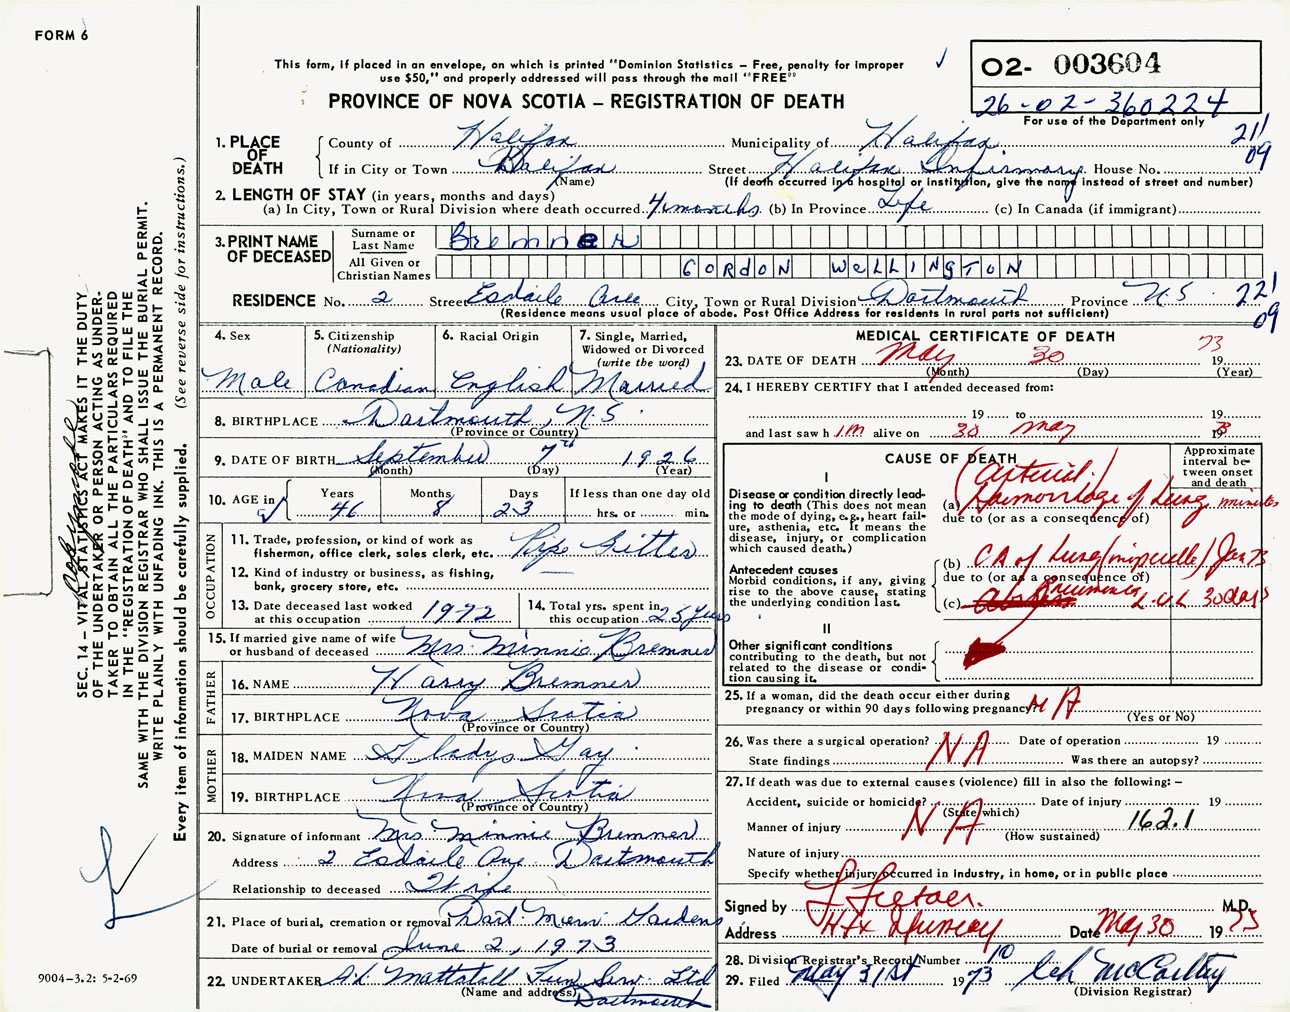 FORM 6
This form, if placed in an envelope, on which is printed "Dominion Statistics – Free, penalty for improper
use $50," and properly addressed will pass through the mail "FREE"
PROVINCE OF NOVA SCOTIA – REGISTRATION OF DEATH
02- 003604
26-02-360224
For use of the Department only
211
09
1. PLACE OF DEATH
County of Halifax Municipality of Halifax
If in City or Town Halifax Street Halifax Infirmary House No.
(Name) (If death occurred in a hospital or institution, give the name instead of street and number)
2. LENGTH OF STAY (in years, months and days)
(a) In City, Town or Rural Division where death occurred 4 months (b) In Province Life (c) In Canada (if immigrant)
3. PRINT NAME OF DECEASED
Surname or Last Name Bremner
All Given or Christian Names GORDON WELLINGTON
RESIDENCE No. 2 Street Esdaile Ave City, Town or Rural Division Dartmouth Province N.S.
221
09
(Residence means usual place of abode. Post Office Address for residents in rural parts not sufficient)
4. Sex
Male
5. Citizenship
(Nationality)
Canadian
6. Racial Origin
English
7. Single, Married,
Widowed or Divorced
(write the word)
Married
8. BIRTHPLACE Dartmouth, N.S.
(Province or Country)
9. DATE OF BIRTH September 7th 1926
(Month) (Day) (Year)
10. AGE in
Years Months Days If less than one day old
46 8 23 hrs. or min.
OCCUPATION
11. Trade, profession, or kind of work as
fisherman, office clerk, sales clerk, etc. Pipe Fitter
12. Kind of industry or business, as fishing,
bank, grocery store, etc.
13. Date deceased last worked
at this occupation 1972
14. Total yrs. spent in
this occupation 25 years
15. If married give name of wife
or husband of deceased Mrs. Minnie Bremner
FATHER
16. NAME Harry Bremner
17. BIRTHPLACE Nova Scotia
(Province or Country)
MOTHER
18. MAIDEN NAME Gladys Gay
19. BIRTHPLACE Nova Scotia
(Province or Country)
20. Signature of informant Mrs Minnie Bremner
Address 2 Esdaile Ave Dartmouth
Relationship to deceased Wife
21. Place of burial, cremation or removal Dart. Mem. Gardens
Date of burial or removal June 2, 1973
22. UNDERTAKER A.L. Mattatall Fun. Serv. Ltd
(Name and address) Dartmouth
MEDICAL CERTIFICATE OF DEATH
23. DATE OF DEATH May 30 19 73
(Month) (Day) (Year)
24. I HEREBY CERTIFY that I attended deceased from:
19 to 19
and last saw h im alive on 30 May 19 73
CAUSE OF DEATH
Approximate
interval be-
tween onset
and death
I
Disease or condition directly lead-
ing to death (This does not mean
the mode of dying, e.g., heart fail-
ure, asthenia, etc. It means the
disease, injury, or complication
which caused death.)
(arterial)
(a) Haemorrhage of Lung minutes
due to (or as a consequence of)
(b) CA of Lung Jan 73
Antecedent causes
Morbid conditions, if any, giving
rise to the above cause, stating
the underlying condition last.
due to (or as a consequence of)
(c) Pneumonia L.U.L 30 days
II
Other significant conditions
contributing to the death, but not
related to the disease or condi-
tion causing it.
25. If a woman, did the death occur either during
pregnancy or within 90 days following pregnancy? NA
(Yes or No)
26. Was there a surgical operation? NA Date of operation 19
State findings Was there an autopsy?
27. If death was due to external causes (violence) fill in also the following: –
Accident, suicide or homicide? Date of injury 19
(State which)
Manner of injury NA 162.1
(How sustained)
Nature of injury
Specify whether injury occurred in industry, in home, or in public place
Signed by M.D.
Address Hfx Date May 30 19 73
28. Division Registrar's Record Number 10
29. Filed May 31st 1973 McCarthy
(Division Registrar)
SEC. 14 – VITAL STATISTICS ACT MAKES IT THE DUTY
OF THE UNDERTAKER OR PERSON ACTING AS UNDER-
TAKER TO OBTAIN ALL THE PARTICULARS REQUIRED
IN THE "REGISTRATION OF DEATH" AND TO FILE THE
SAME WITH THE DIVISION REGISTRAR WHO SHALL ISSUE THE BURIAL PERMIT.
WRITE PLAINLY WITH UNFADING INK. THIS IS A PERMANENT RECORD.
Every item of Information should be carefully supplied. (See reverse side for instructions.)
9004-3.2: 5-2-69